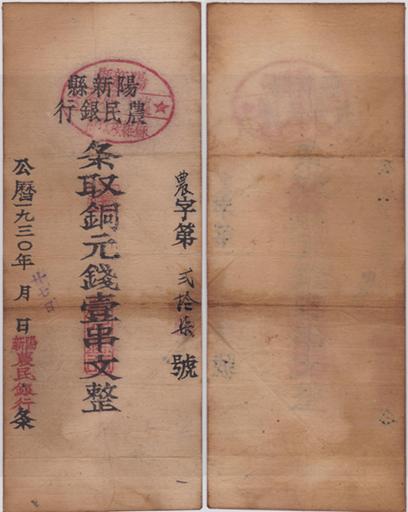 陽新縣
農民銀行
農字第貳拾柒號
条取銅元錢壹串文整
公曆一九三〇年 月 日
廿七日
陽新
農民銀行条